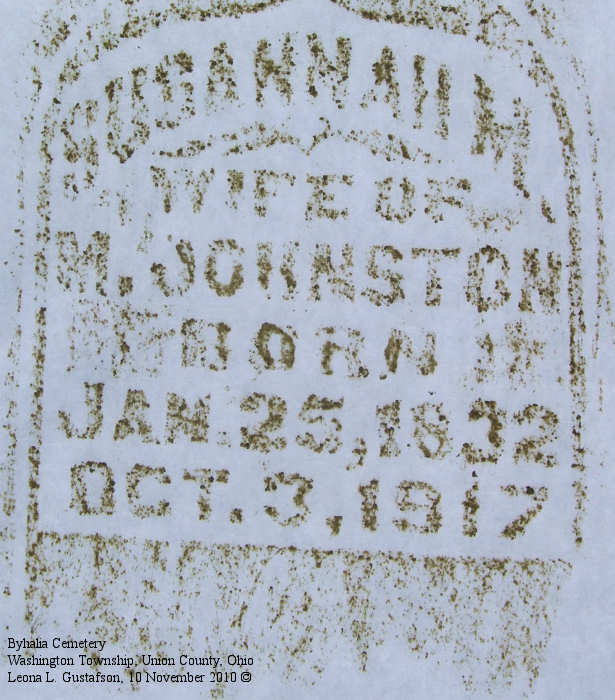 SUSANNAH M.
WIFE OF
M. JOHNSTON
BORN
JAN. 25, 1832
OCT. 3, 1917
Byhalia Cemetery
Washington Township, Union County, Ohio
Leona L. Gustafson, 10 November 2010 ©